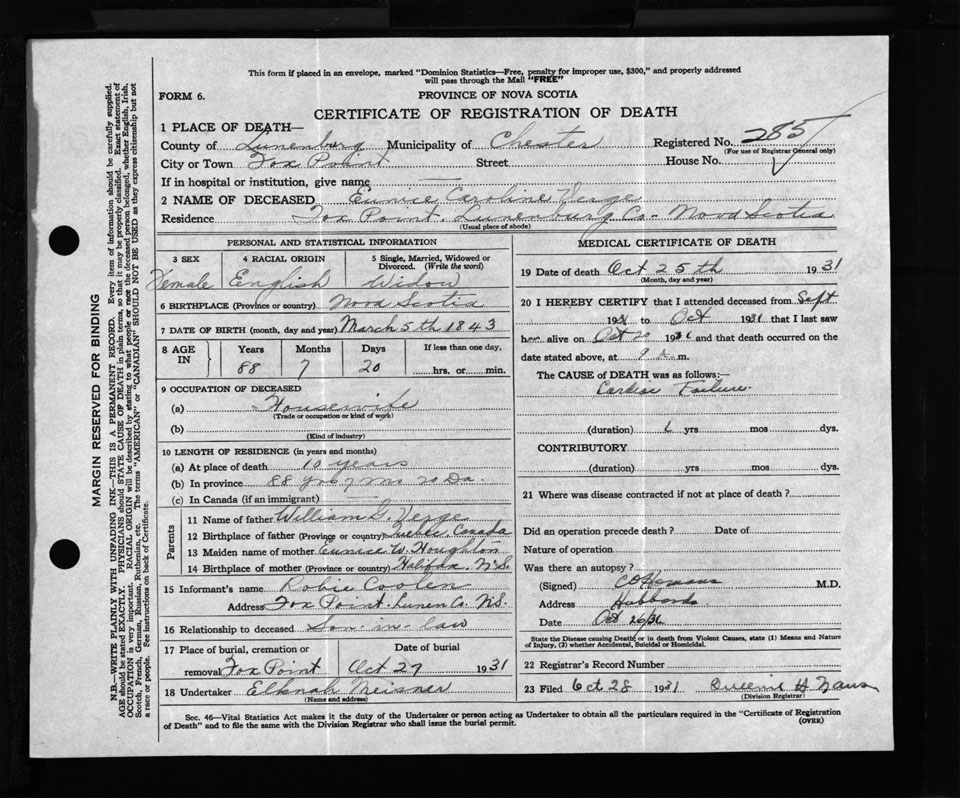 This form if placed in an envelope, marked "Dominion Statistics—Free, penalty for improper use, $300," and properly addressed
will pass through the Mail "FREE"
FORM 6.
PROVINCE OF NOVA SCOTIA
CERTIFICATE OF REGISTRATION OF DEATH
1 PLACE OF DEATH—
County of Lunenburg Municipality of Chester Registered No. 285
(For use of Registrar General only)
City or Town Fox Point Street House No.
If in hospital or institution, give name
2 NAME OF DECEASED Eunice Caroline Verge
Residence Fox Point. Lunenburg Co- Nova Scotia
(Usual place of abode)
PERSONAL AND STATISTICAL INFORMATION
3 SEX 4 RACIAL ORIGIN 5 Single, Married, Widowed or
Divorced. (Write the word)
Female English Widow
6 BIRTHPLACE (Province or country) Nova Scotia
7 DATE OF BIRTH (month, day and year) March 5th 1843
8 AGE IN Years Months Days If less than one day,
88 7 20 hrs. or min.
9 OCCUPATION OF DECEASED
(a) Housewife
(Trade or occupation or kind of work)
(b)
(Kind of industry)
10 LENGTH OF RESIDENCE (in years and months)
(a) At place of death 10 years
(b) In province 88 yrs 7 Ms 20 Da.
(c) In Canada (if an immigrant)
Parents
11 Name of father William G. Verge
12 Birthplace of father (Province or country) Quebec Canada
13 Maiden name of mother Eunice W. Houghton
14 Birthplace of mother (Province or country) Halifax N.S.
15 Informant's name Robie Coolen
Address Fox Point. Lunen Co. N.S.
16 Relationship to deceased Son-in-law
17 Place of burial, cremation or Date of burial
removal Fox Point Oct 27 1931
18 Undertaker Elknah Meisner
(Name and address)
MEDICAL CERTIFICATE OF DEATH
19 Date of death Oct 25th 1931
(Month, day and year)
20 I HEREBY CERTIFY that I attended deceased from Sept
1931 to Oct 1931 that I last saw
her alive on Oct 1931 and that death occurred on the
date stated above, at m.
The CAUSE of DEATH was as follows:—
Cardiac Failure
(duration) yrs mos dys.
CONTRIBUTORY
(duration) yrs mos dys.
21 Where was disease contracted if not at place of death?
Did an operation precede death? Date of
Nature of operation
Was there an autopsy?
(Signed) M.D.
Address Hubbards
Date Oct 26/31
State the Disease causing Death, or in death from Violent Causes, state (1) Means and Nature
of Injury, (2) whether Accidental, Suicidal or Homicidal.
22 Registrar's Record Number
23 Filed Oct 28 1931
(Division Registrar)
Sec. 46—Vital Statistics Act makes it the duty of the Undertaker or person acting as Undertaker to obtain all the particulars required in the "Certificate of Registration
of Death" and to file the same with the Division Registrar who shall issue the burial permit.
(OVER)
MARGIN RESERVED FOR BINDING
N.B.—WRITE PLAINLY WITH UNFADING INK—THIS IS A PERMANENT RECORD. Every item of information should be carefully supplied.
AGE should be stated EXACTLY. PHYSICIANS should STATE CAUSE OF DEATH in plain terms, so that it may be properly classified. Exact statement of
OCCUPATION is very important. RACIAL ORIGIN will be described by stating to what people or race the deceased person belonged, whether English, Irish,
Scotch, French, German, Russian, Ruthenian, etc. The terms "AMERICAN" or "CANADIAN" SHOULD NOT BE USED as they express citizenship but not
a race or people. See instructions on back of Certificate.